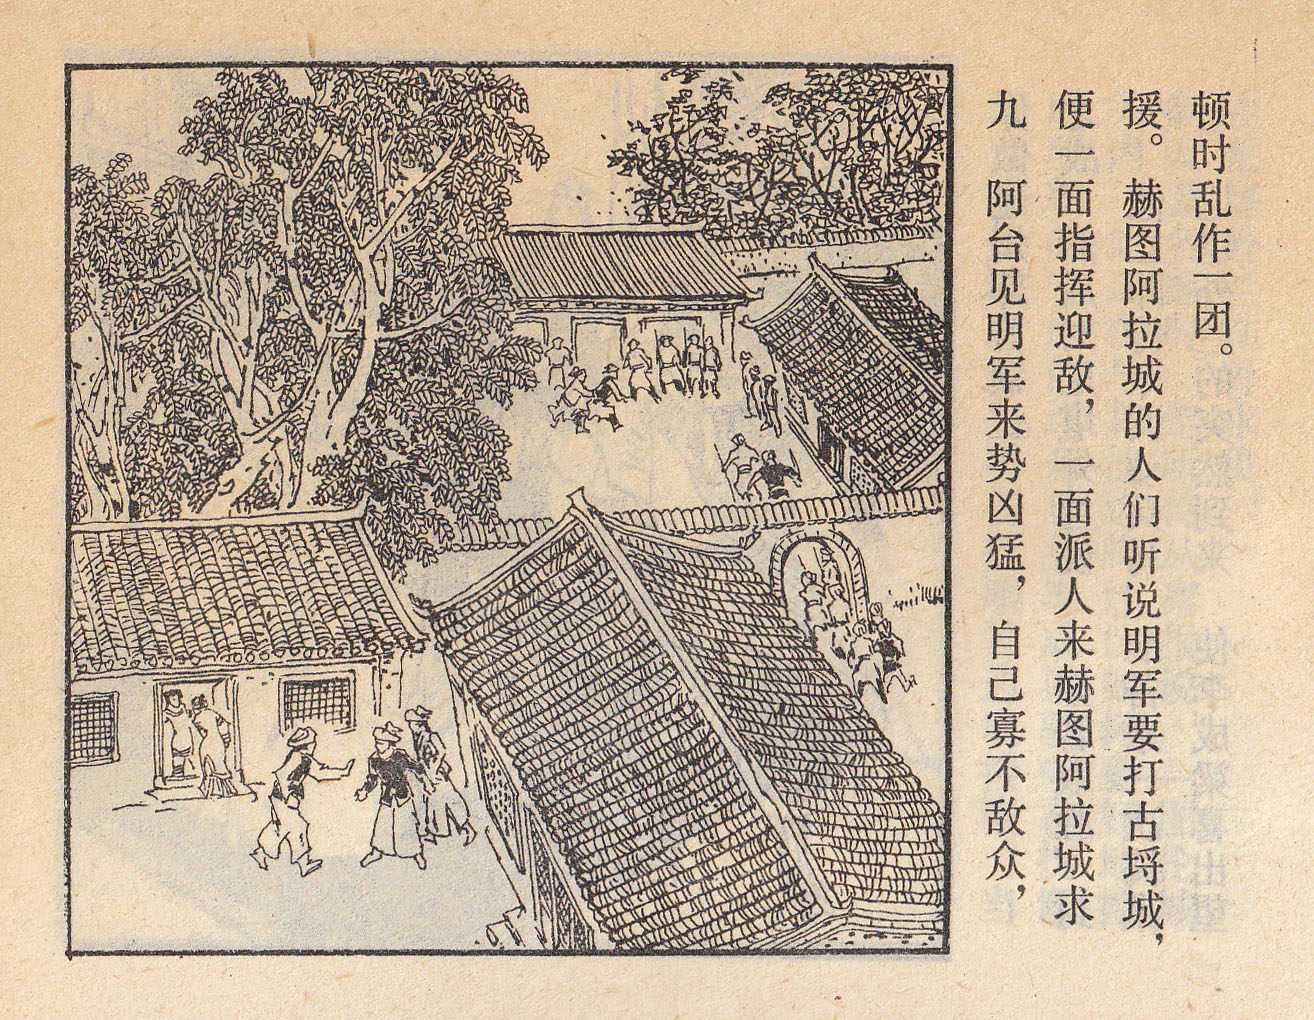 九 阿台见明军来势凶猛，自己寡不敌众，
便一面指挥迎敌，一面派人来赫图阿拉城求
援。赫图阿拉城的人们听说明军要打古埒城，
顿时乱作一团。